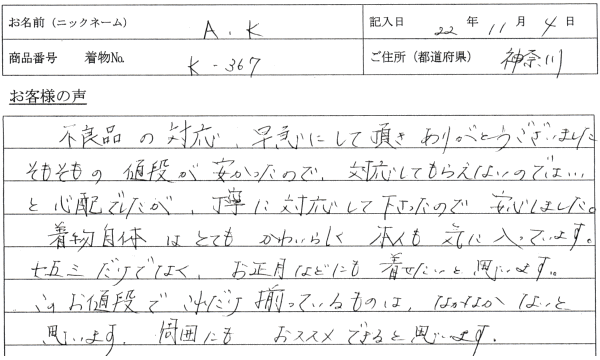 お名前（ニックネーム） A.K 記入日 22年11月4日
商品番号 着物No. K-367 ご住所（都道府県） 神奈川
お客様の声
不良品の対応、早急にして頂きありがとうございました
そもそもの値段が安かったので、対応してもらえないのでは…
と心配でしたが、丁寧に対応して下さったので安心しました。
着物自体はとてもかわいらしく本人も気に入っています。
七五三だけでなく、お正月などにも着せたいと思います。
このお値段でこれだけ揃っているものは、なかなかないと
思います。周囲にもおススメできると思います。